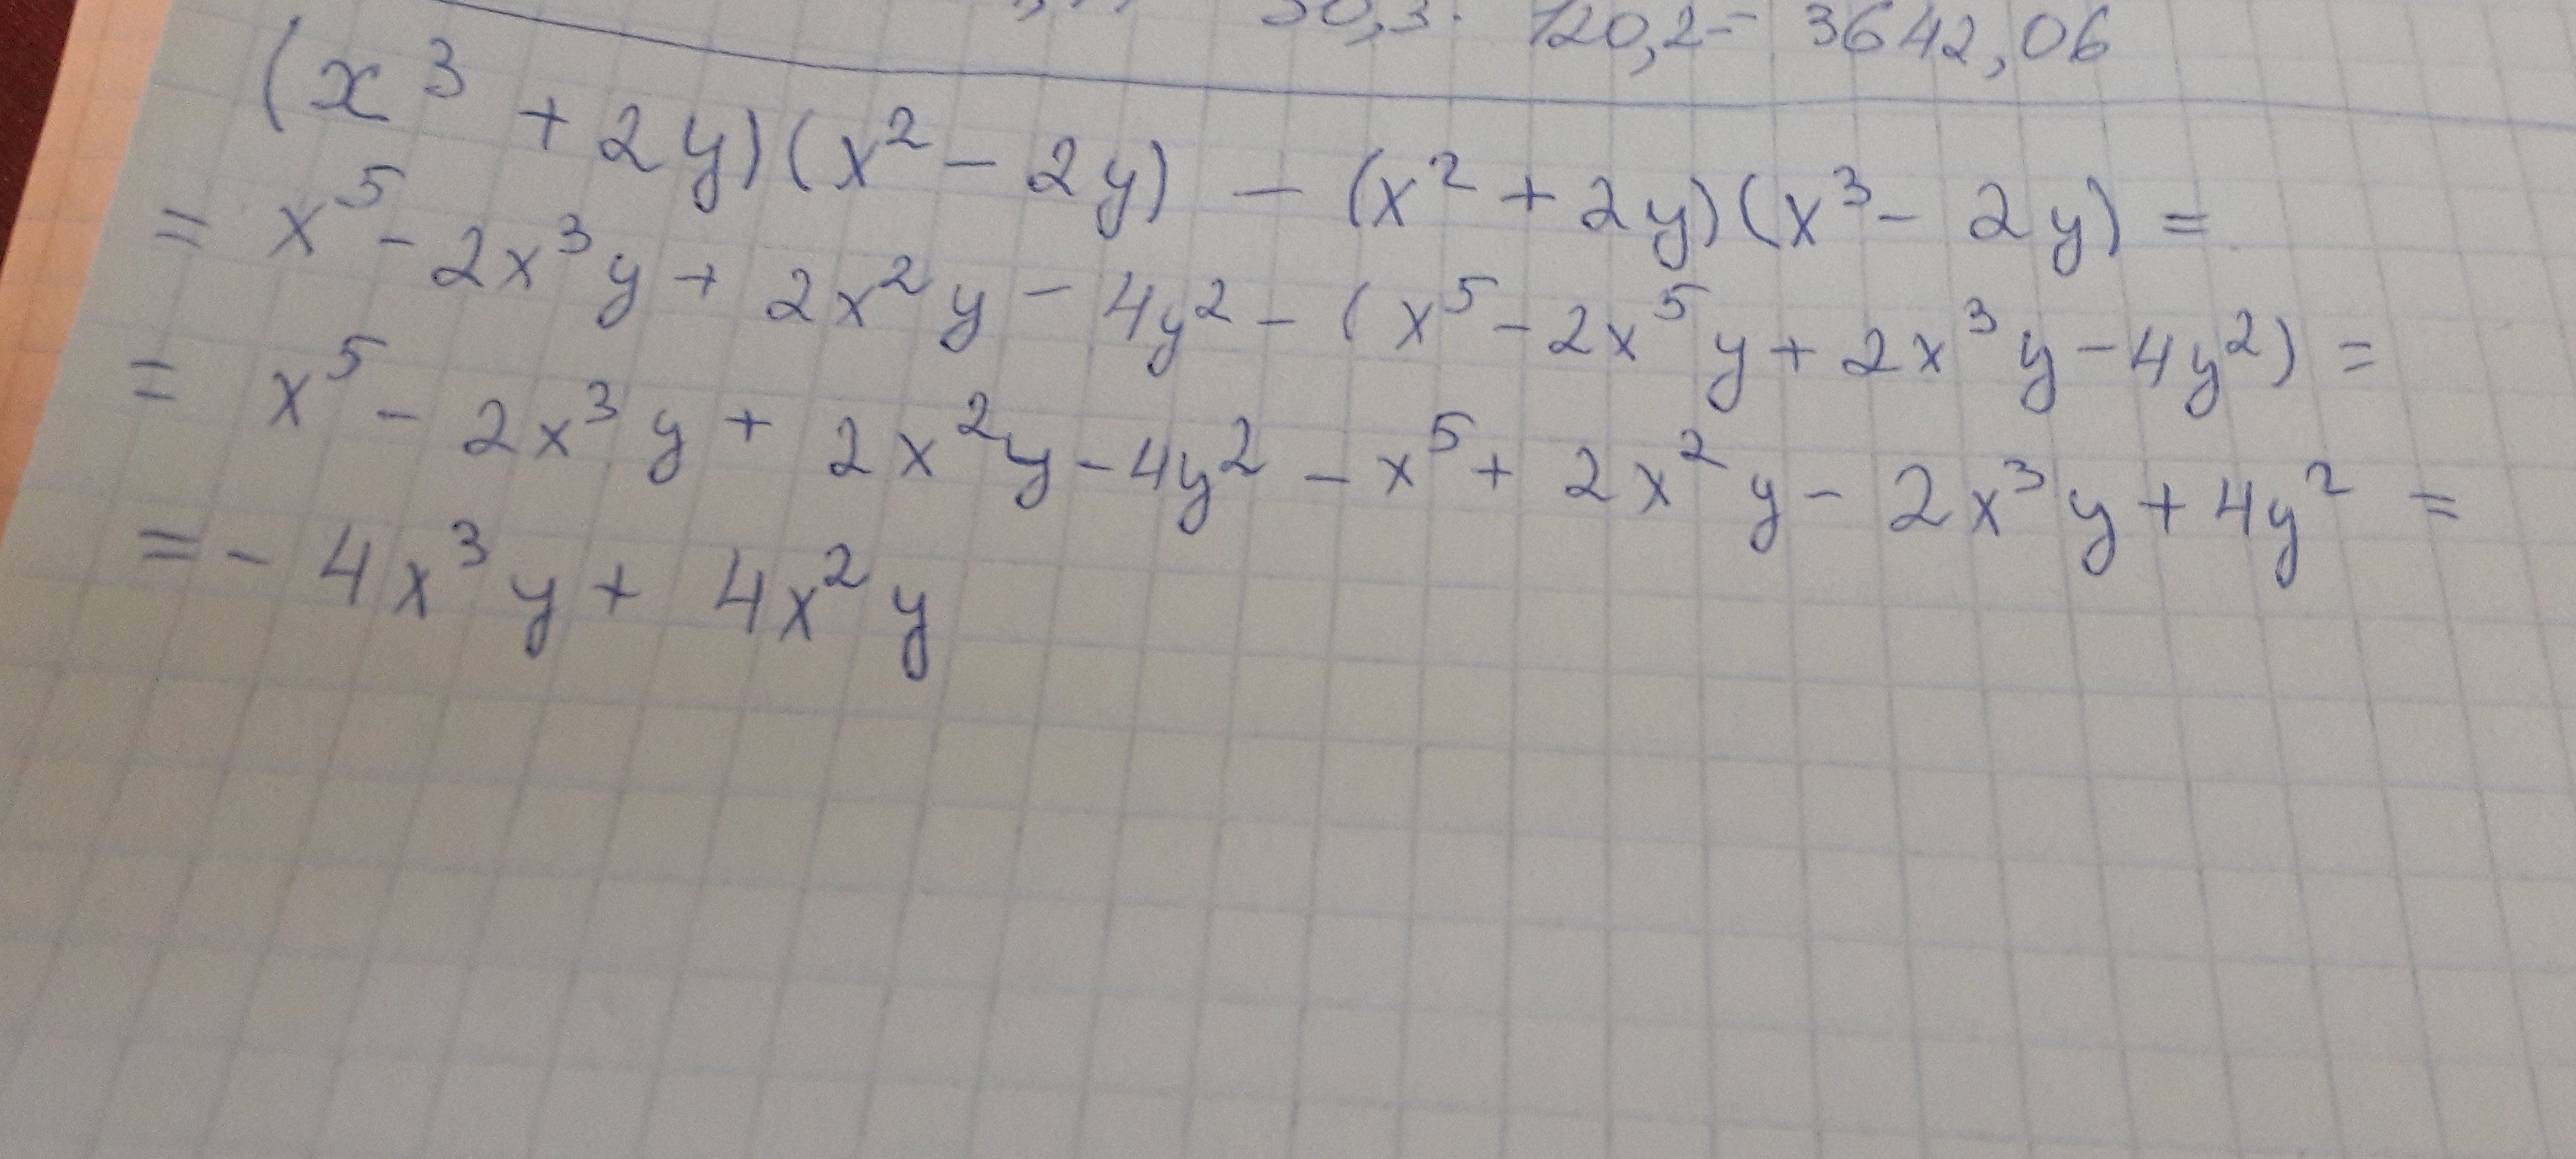 30,3 · 120,2 = 3642,06
(x³ + 2y)(x² - 2y) - (x² + 2y)(x³ - 2y) =
= x⁵ - 2x³y + 2x²y - 4y² - (x⁵ - 2x⁵y + 2x³y - 4y²) =
= x⁵ - 2x³y + 2x²y - 4y² - x⁵ + 2x²y - 2x³y + 4y² =
= - 4x³y + 4x²y